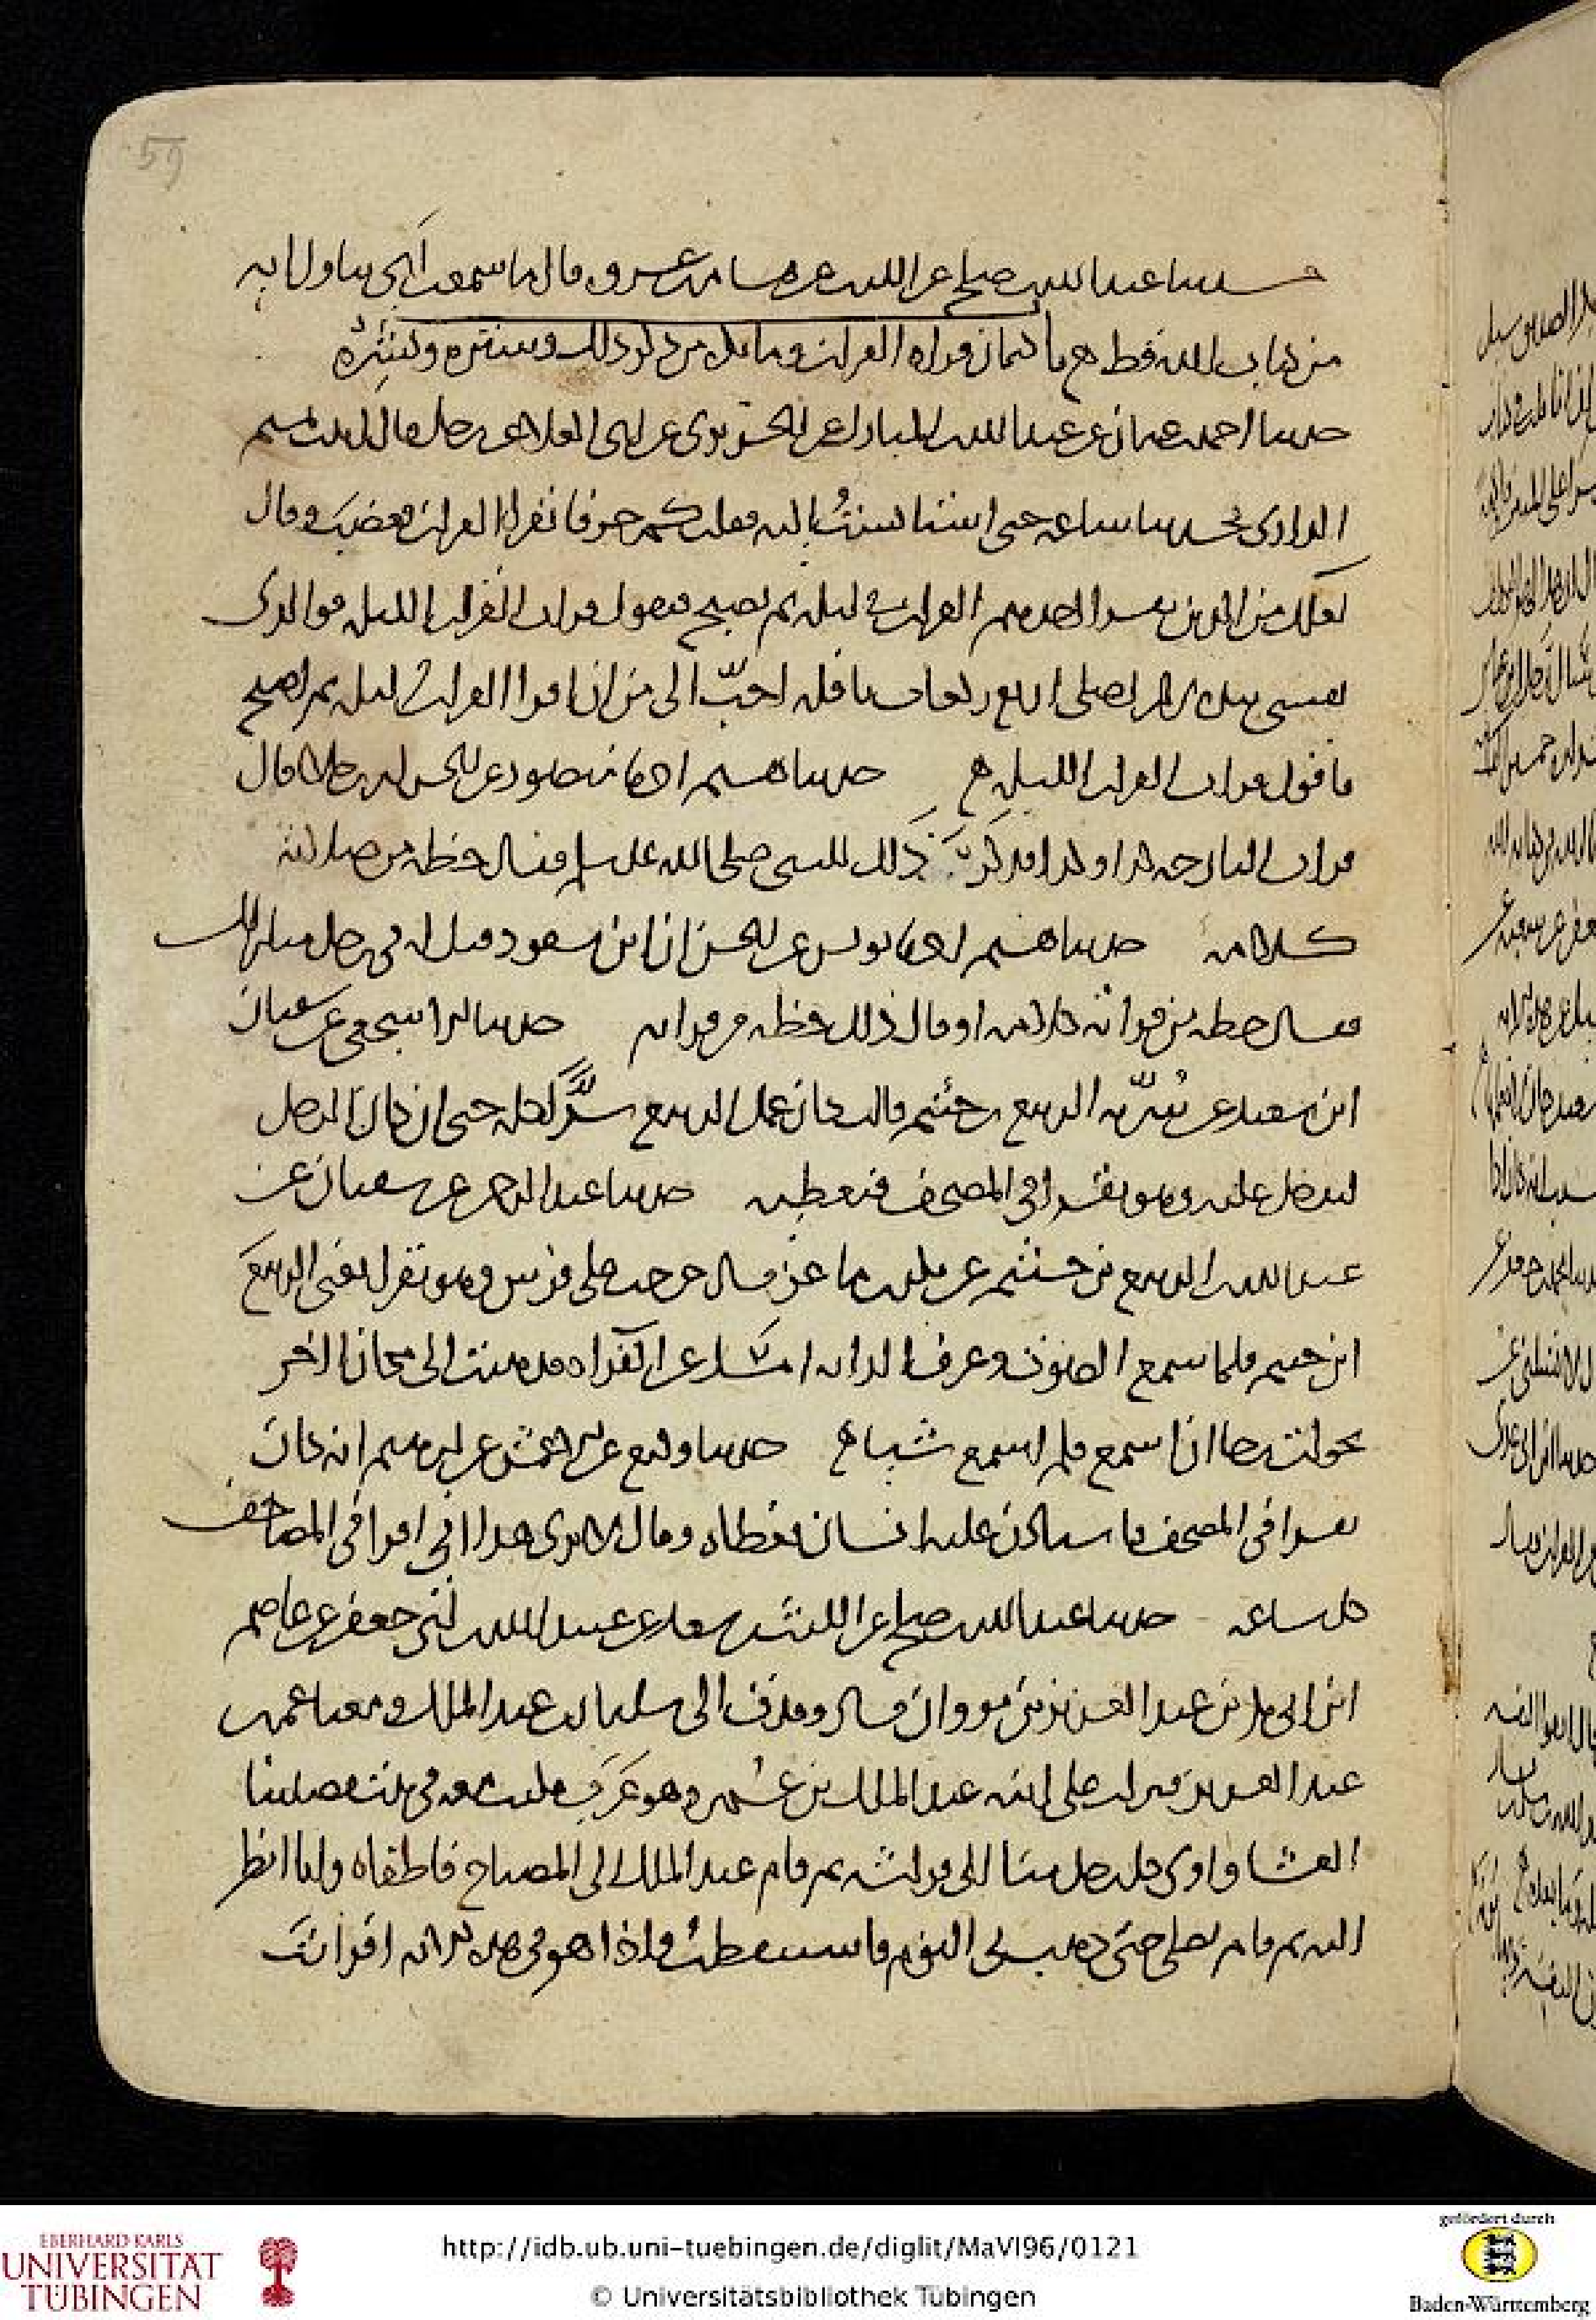 59
حدثنا عبد الله بن صالح عن الليث عن هشام بن عروة قال ما سمعت أبي تناول آية
من كتاب الله قط باب كتمان قراءة القرآن وما يكره من ذكر ذلك وستره ونشره
حدثنا احمد بن عثمان عن عبد الله بن المبارك عن الجريري عن ابي العلاء عن رجل قال اتيت تميم
الداري فحدثنا ساعة حتى استانست اليه فقلت كم جزءا تقرا القرآن فغضب وقال
لعلك من الذين يقرا احدهم القرآن في ليلة ثم يصبح فيقول قرات القرآن الليلة فوالذي
نفسي بيده لان اصلي اربع ركعات نافلة احب الى من ان اقرا القرآن في ليلة ثم اصبح
فاقول قرات القرآن الليلة حدثنا هشيم اخبرنا منصور عن الحسن ان رجلا قال
قرات البارحة كذا وكذا فذكر ذلك للنبي صلى الله عليه وسلم فقال حظه من صلاته
كلامه حدثنا هشيم اخبرنا يونس عن الحسن ان ابن مسعود قيل له في رجل مثل ذلك
فقال حظه من قراءته كلامه او قال ذلك حظه من قراءته حدثنا ابن ابي يحيى عن سفيان
ابن سعيد عن سرية الربيع بن خثيم قالت كان عمل الربيع سرا كله حتى ان كان الرجل
ليدخل عليه وهو يقرا في المصحف فيغطيه حدثنا عبد الرحمن عن سفيان عن
عبد الله بن الربيع بن خثيم عن بكر بن ماعز قال خرجت على فرس وهو يقرا يعني الربيع
ابن خثيم فلما سمع الصوت وعرف الدابة امسك عن القراءة فذهبت الى مكان اخر
تحولت رجاء ان اسمع فلم اسمع شيا حدثنا وكيع عن الاعمش عن ابرهيم انه كان
يقرا في المصحف فاستاذن عليه انسان فغطاه وقال لا يرى هذا اني اقرا في المصحف
كل ساعة حدثنا عبد الله بن صالح عن الليث بن سعد عن عبيد الله بن ابي جعفر عن عاصم
ابن ابي بكر بن عبد العزيز بن مروان قال وفدت الى سليمان بن عبد الملك ومعنا عمر بن
عبد العزيز فنزلت على ابنه عبد الملك بن عمر وهو عزب فكنت معه في بيت فصلينا
العشا واوى كل رجل منا الى فراشه ثم قام عبد الملك الى المصباح فاطفاه وانا انظر
اليه ثم قام يصلي حتى ذهب بي النوم فاستيقظت فاذا هو في هذه الاية افرايت
http://idb.ub.uni-tuebingen.de/diglit/MaVI96/0121
© Universitätsbibliothek Tübingen
EBERHARD KARLS
UNIVERSITÄT
TÜBINGEN
gefördert durch
Baden-Württemberg